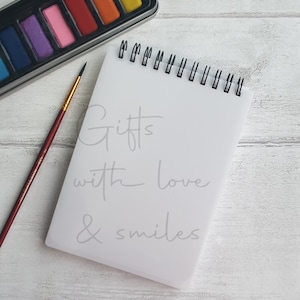 Gifts
with love
& smiles